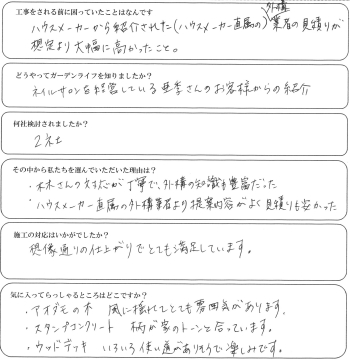 工事をされる前に困っていたことはなんです
ハウスメーカーから紹介された(ハウスメーカー直属の)外構業者の見積りが
想定より大幅に高かったこと。
どうやってガーデンライフを知りましたか？
ネイルサロンを経営している さんのお客様からの紹介
何社検討されましたか？
2社
その中から私たちを選んでいただいた理由は？
・ さんの対応が丁寧で、外構の知識も豊富だった
・ハウスメーカー直属の外構業者より提案内容がよく見積りも安かった
施工の対応はいかがでしたか？
想像通りの仕上がりでとても満足しています。
気に入ってらっしゃるところはどこですか？
・アオダモの木 風に揺れてとても雰囲気があります。
・スタンプコンクリート 柄が家のトーンと合っています。
・ウッドデッキ いろいろ使い道がありそうで楽しみです。